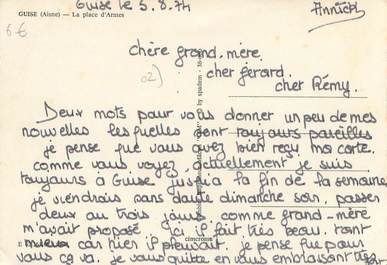 Guise le 5.8.74
Annick
GUISE (Aisne) — La place d'Armes
6€
chère grand-mère,
02)
cher gérard,
cher Rémy.
Deux mots pour vous donner un peu de mes
nouvelles lesquelles sont toujours pareilles
je pense que vous avez bien reçu ma carte.
comme vous voyez, actuellement je suis
toujours à Guise jusqu'à la fin de la semaine
je viendrois sans doute dimanche soir, passer
deux ou trois jours comme grand-mère
m'avait proposé Ici il fait très beau. tant
mieux car hier il pleuvait. je pense que pour
vous ça va. je vous quitte en vous embrassant